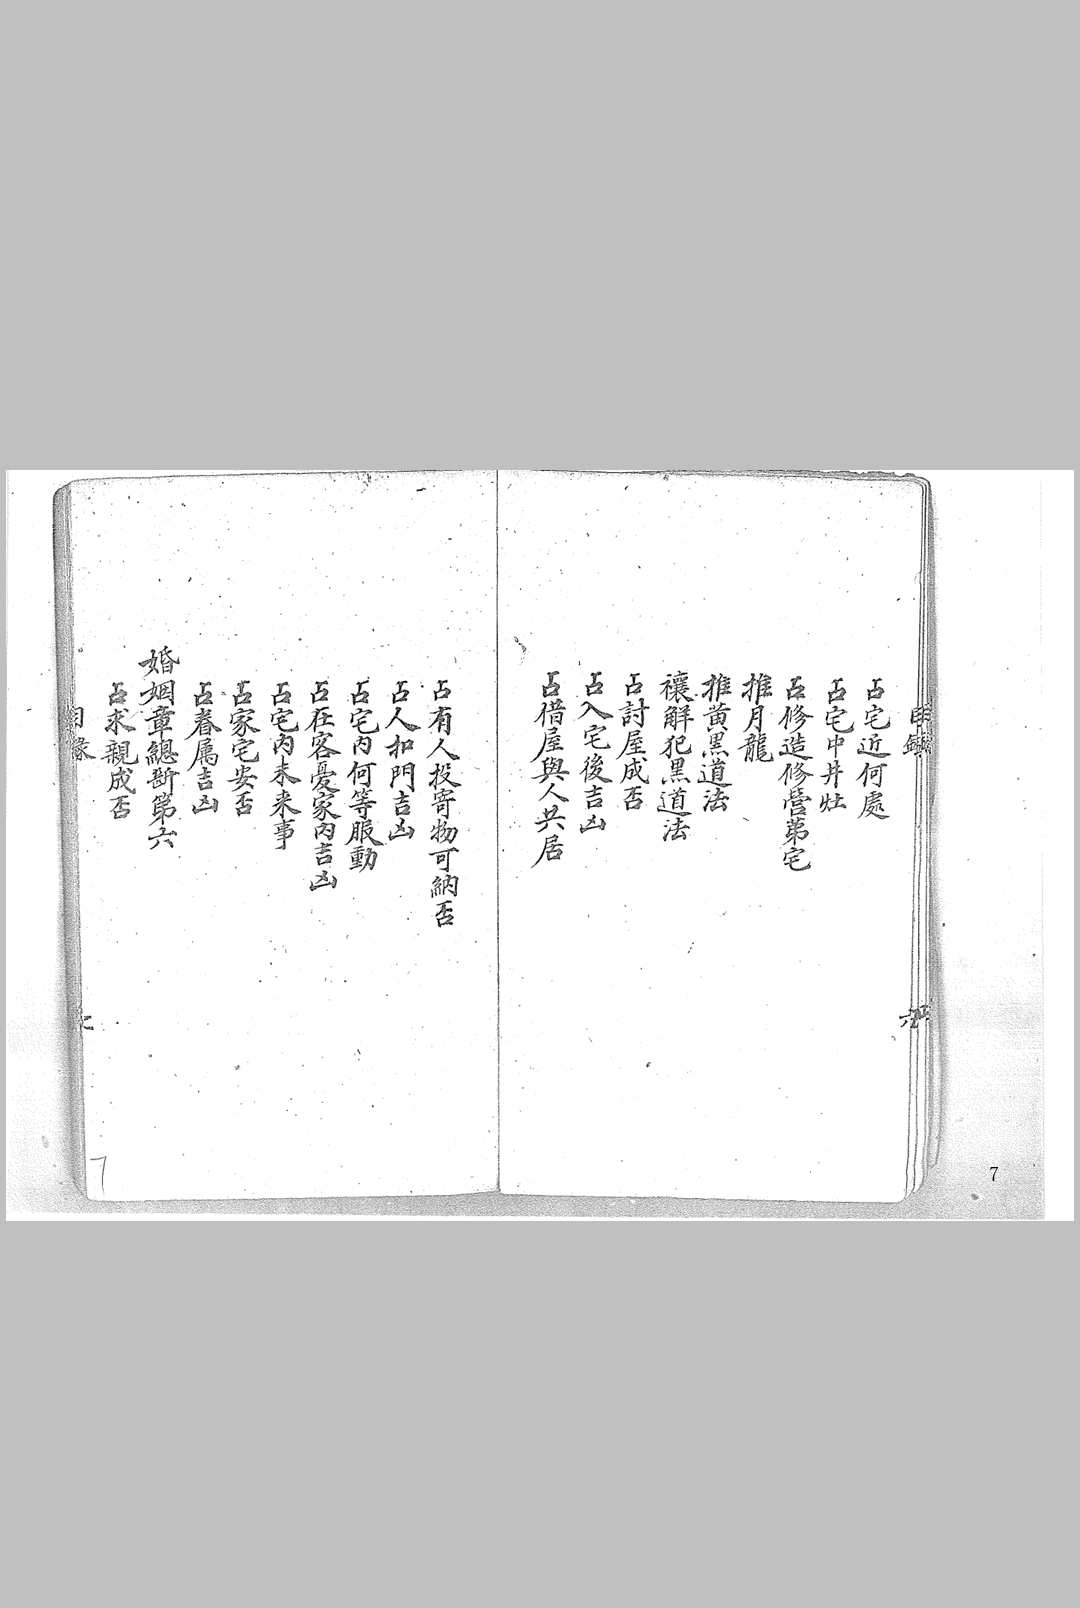 占宅近何處
占宅中井灶
占修造修營苐宅
推月龍
推黄黑道法
禳解犯黑道法
占討屋成否
占入宅後吉凶
占借屋與人共居
占有人投寄物可納否
占人扣門吉凶
占宅内何等服動
占在客憂家内吉凶
占宅内未来事
占家宅安否
占眷属吉凶
婚姻章總断第六
占求親成否
目錄
六
7
7